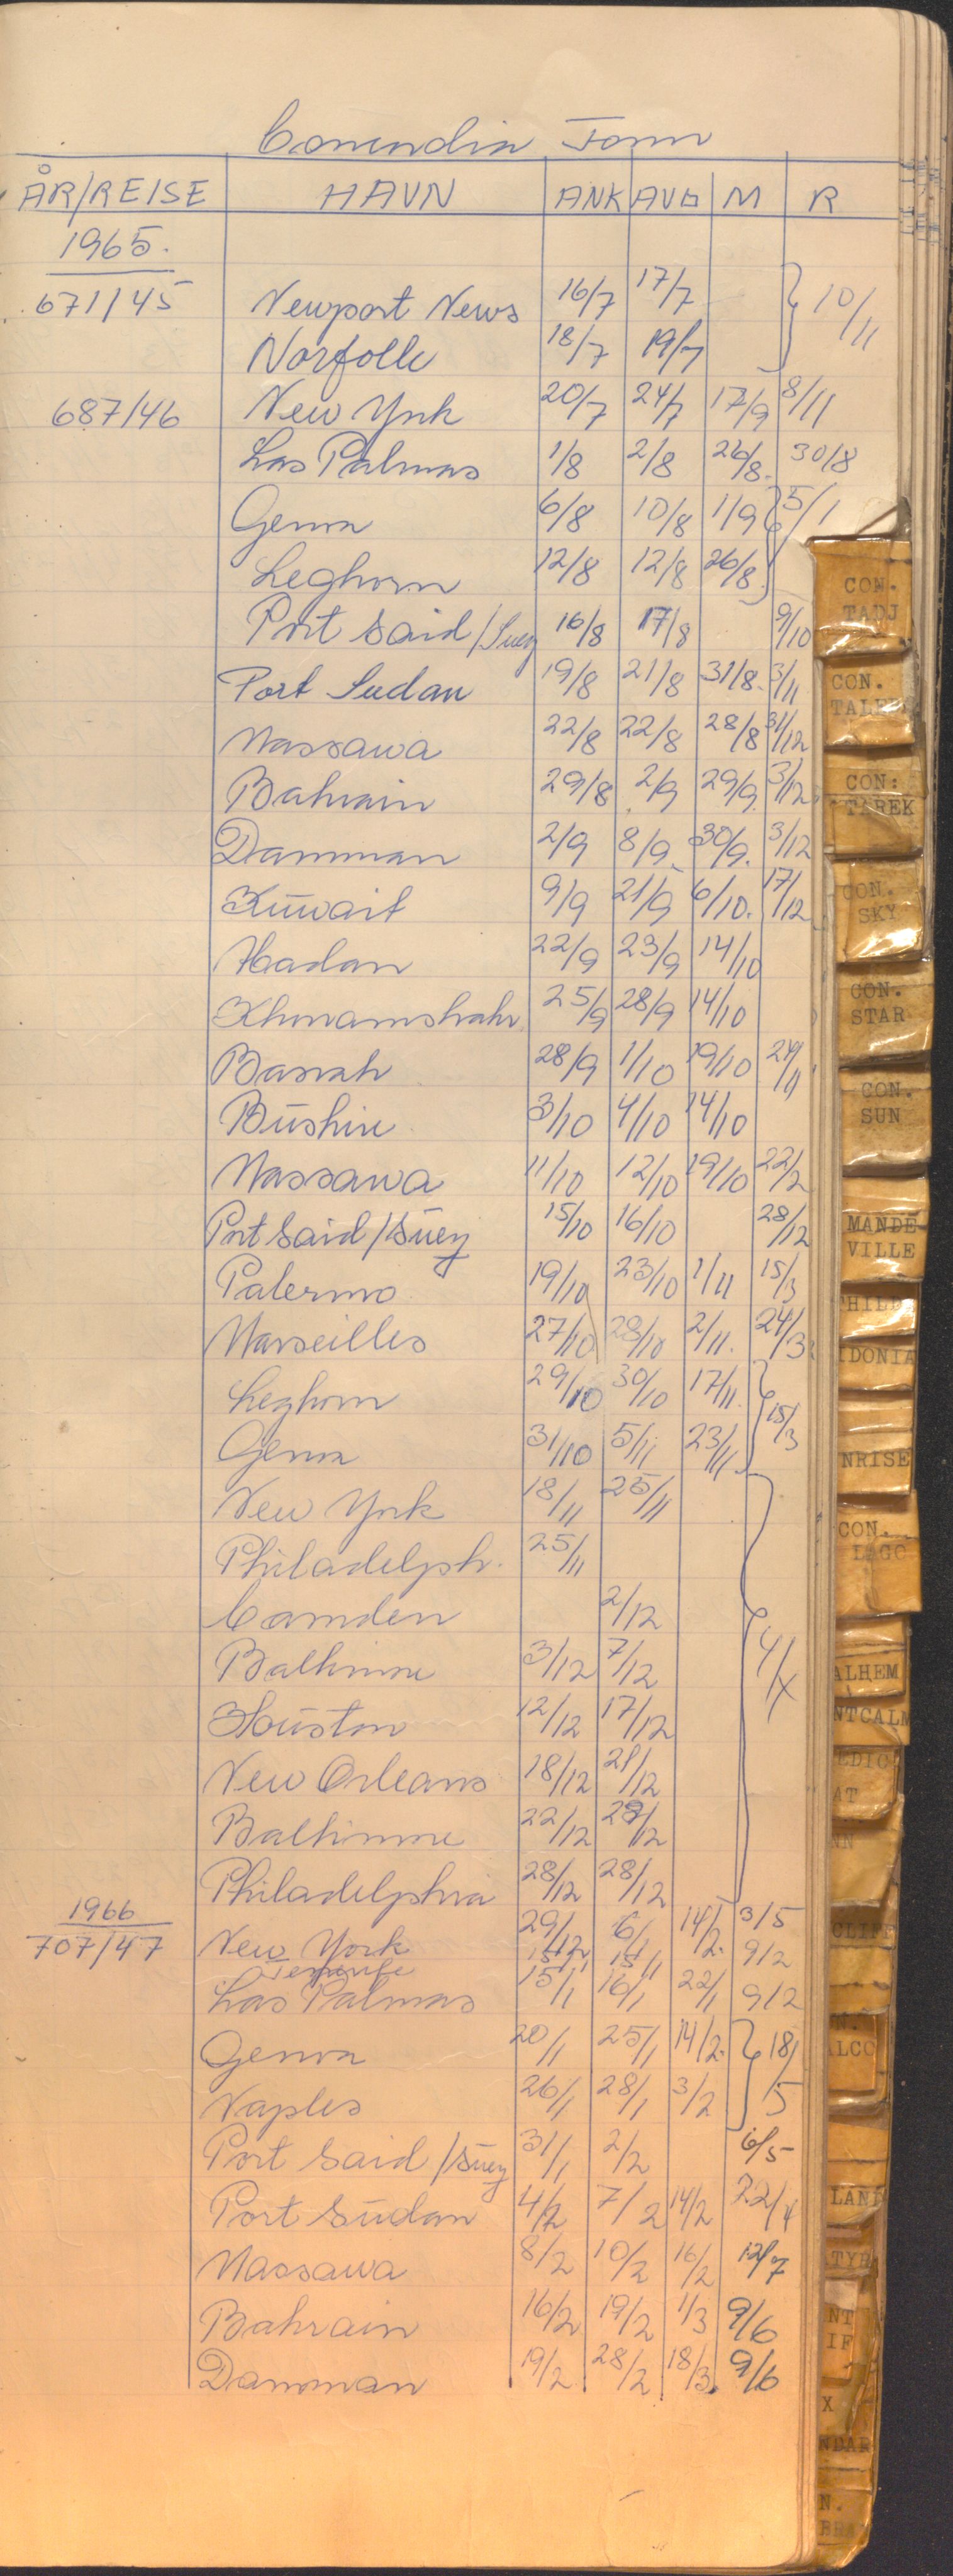 Concordia Fonn
ÅR/REISE HAVN ANK AVG M R
1965.
671/45 Newport News 16/7 17/7 10/11
Norfolk 18/7 19/7
687/46 New York 20/7 24/7 17/9 8/11
Las Palmas 1/8 2/8 26/8. 30/8
Genoa 6/8 10/8 1/9 5/1
Leghorn 12/8 12/8 26/8.
Port Said/Suez 16/8 17/8 9/10
Port Sudan 19/8 21/8 31/8. 3/11
Massawa 22/8 22/8 28/8 31/12
Bahrain 29/8 2/9 29/9. 3/12
Damman 2/9 8/9. 30/9. 3/12
Kuwait 9/9 21/9 6/10. 17/12
Abadan 22/9 23/9 14/10
Khorramshahr 25/9 28/9 14/10
Basrah 28/9 1/10 19/10 24/11
Bushire 3/10 4/10 14/10
Massawa 11/10 12/10 19/10 22/2
Port Said/Suez 15/10 16/10 28/12
Palermo 19/10 23/10 1/11 15/3
Marseilles 27/10 28/10 2/11. 24/3
Leghorn 29/10 30/10 17/11. 15/3
Genoa 31/10 5/11 23/11
New York 18/11 25/11
Philadelph. 25/11
Camden 2/12
Balthimore 3/12 7/12 4/X
Houston 12/12 17/12
New Orleans 18/12 21/12
Balthimore 22/12 28/12
Philadelphia 28/12 28/12
1966
707/47 New York 29/12 6/1 14/2. 3/5
Teneriffe 15/1 15/1 9/2
Las Palmas 15/1 16/1 22/1 9/2
Genoa 20/1 25/1 14/2. 18/5
Naples 26/1 28/1 3/2
Port Said/Suez 31/1 2/2 6/5
Port Sudan 4/2 7/2 14/2 22/4
Massawa 8/2 10/2 16/2 12/7
Bahrain 16/2 19/2 1/3 9/6
Damman 19/2 28/2 18/3. 9/6
CON-
TADJ
CON.
CON:
TAREK
CON.
SKY
CON.
STAR
CON.
SUN
MANDE-
VILLE
IDONIA
NRISE
CON.
LAGO
ALHEM
NTCALM
AT
NN
ALCO
LAN
NT
IF
X
NDAR
N.